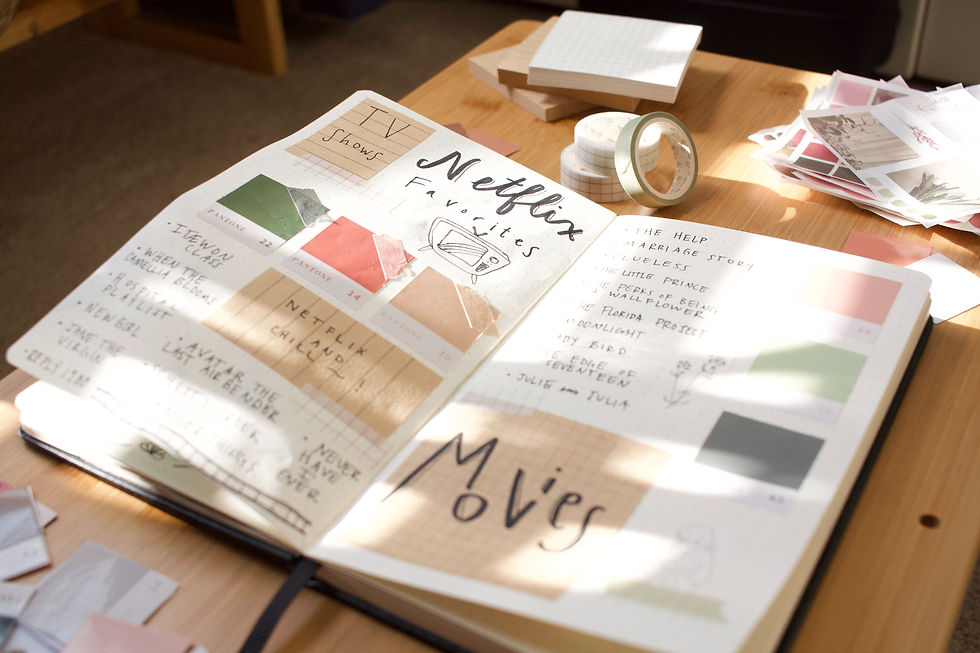 TV
Shows
Netflix
Favorites
PANTONE
22
PANTONE
14
PANTONE
30
• ITEWON
CLASS
• WHEN THE
CAMELLIA BLOOMS
• HOSPITAL
PLAYLIST
• NEW GIRL
• JANE THE
VIRGIN
• REPLY 1988
NETFLIX
AND
CHILL!
• AVATAR THE
LAST AIRBENDER
• NEVER
HAVE
I
EVER
• THE HELP
MARRIAGE STORY
CLUELESS
THE LITTLE PRINCE
THE PERKS OF BEING
A WALLFLOWER
THE FLORIDA PROJECT
MOONLIGHT
DY BIRD
E EDGE OF
SEVENTEEN
• JULIE AND JULIA
Movies